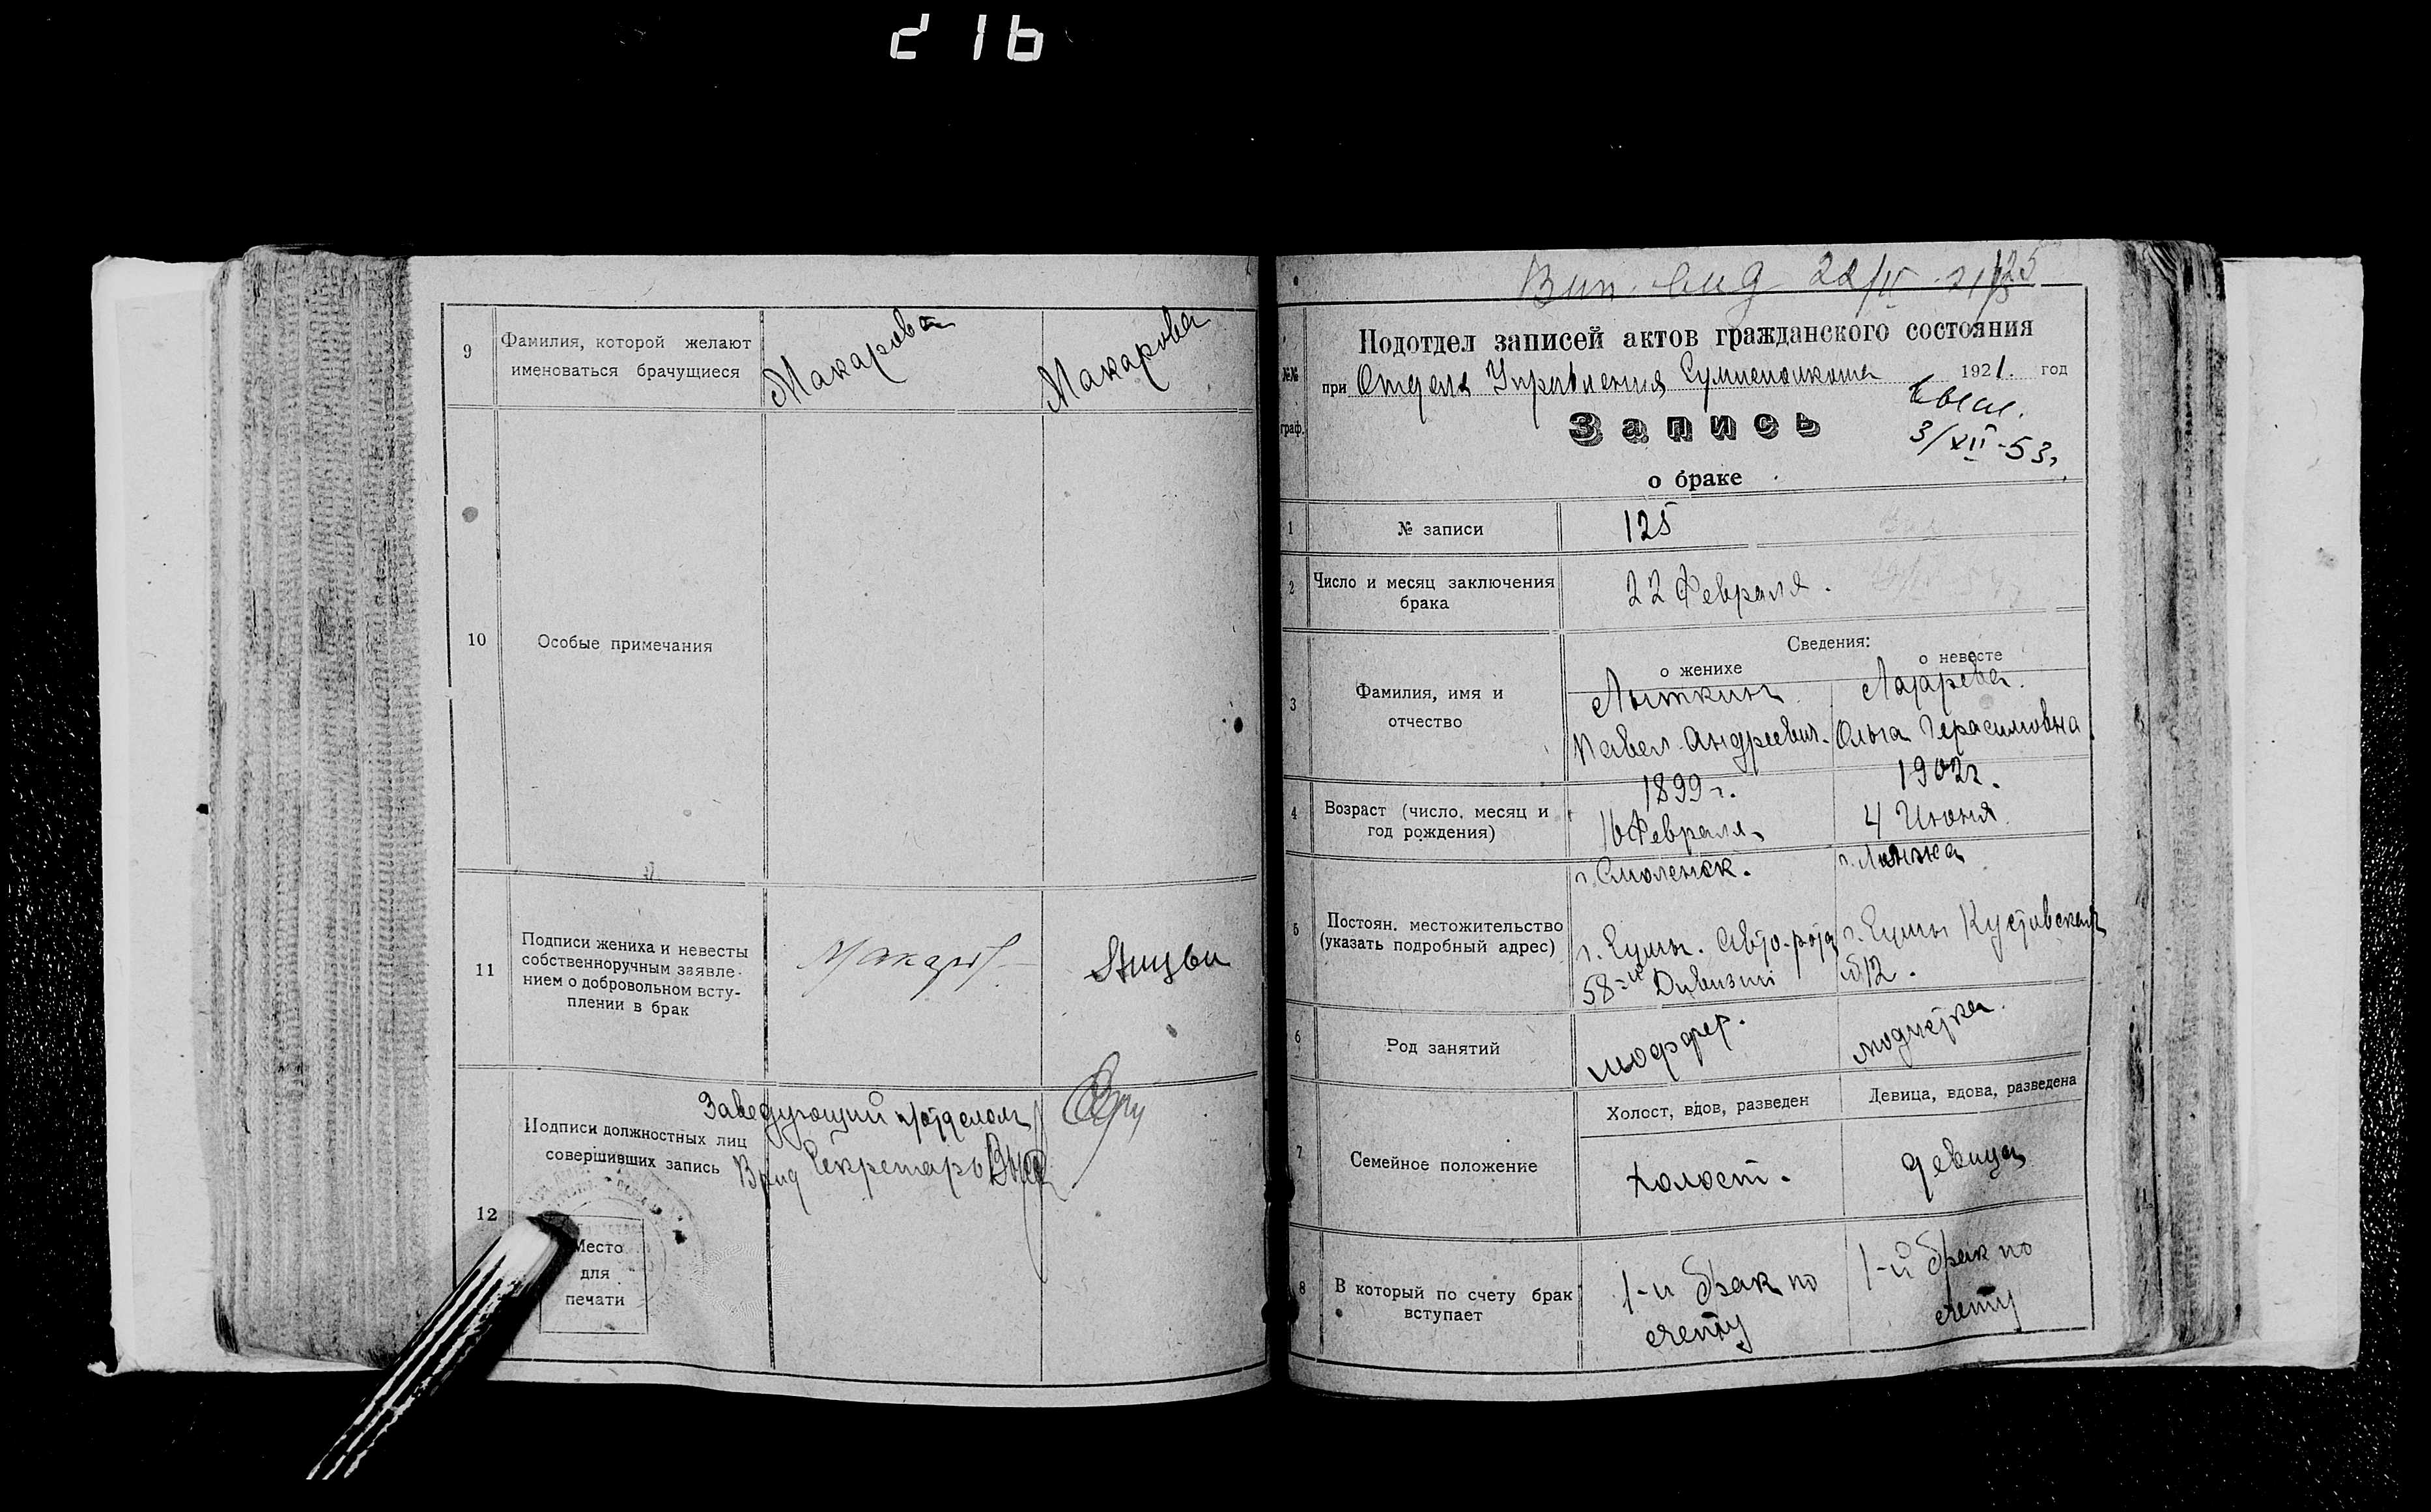 216
9
Фамилия, которой желают
именоваться брачущиеся
Макаров
Макарова
10
Особые примечания
11
Подписи жениха и невесты
собственноручным заявле-
нием о добровольном всту-
плении в брак
Макаров
Подписи должностных лиц
совершивших запись
Заведующий п/отделом
Врид Секретарь
12
Место
для
печати
22/II 21
125
Подотдел записей актов гражданского состояния
№№
граф.
при Отделе Управления 1921. год
Запись
3/XII-53г.
о браке
1
№ записи
125
2
Число и месяц заключения
брака
22 Февраля.
Сведения:
о женихе
о невесте
3
Фамилия, имя и
отчество
Лыткин
Павел Андреевич.
Лазарева.
Ольга Герасимовна
4
Возраст (число, месяц и
год рождения)
1899 г.
16 Февраля
1902г.
4 Июня
5
Постоян. местожительство
(указать подробный адрес)
г. Смоленск.
г. Сумы. Авто-рота
58-й Дивизии
г. Сумы
№12.
6
Род занятий
шоффер.
модистка.
7
Семейное положение
Холост, вдов, разведен
Девица, вдова, разведена
холост.
девица
8
В который по счету брак
вступает
1-й брак по
счету
1-й брак по
счету